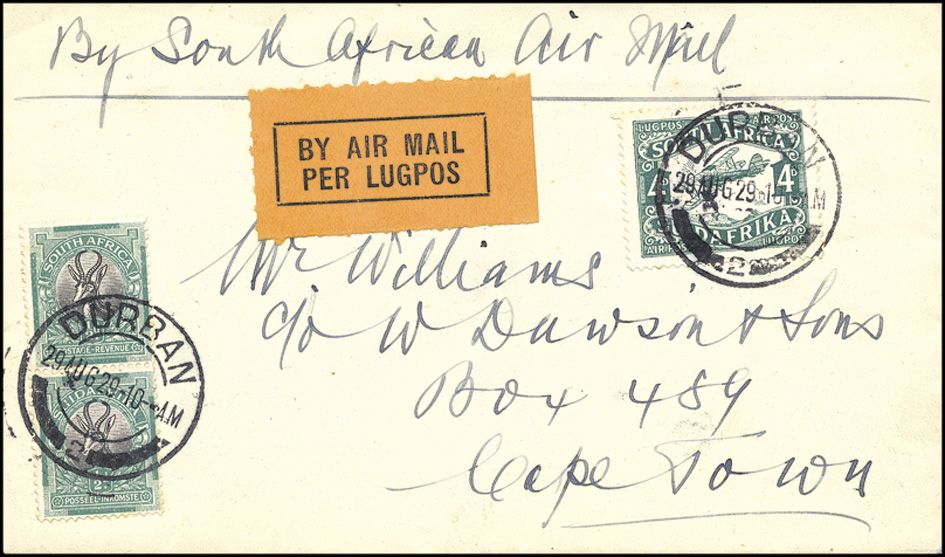 By South African Air Mail
BY AIR MAIL
PER LUGPOS
LUGPOS AIR POST
4D 4D
DAFRIKA
LUGPOS
DURBAN
29 AUG 29-10 AM
2
Mr Williams
c/o W Dawson & Sons
Box 489
Cape Town
SOUTH AFRICA
POSTAGE-REVENUE
DURBAN
29 AUG 29-10 AM
2
POSSEEL-INKOMSTE